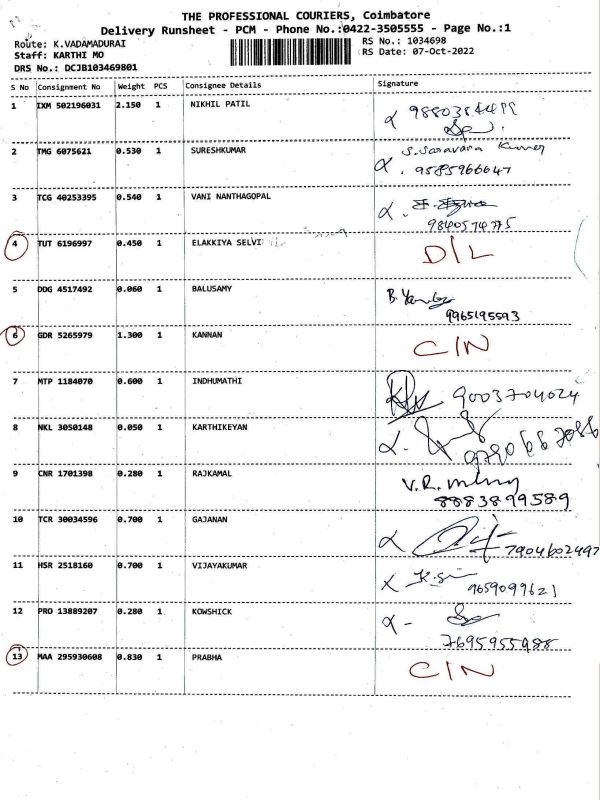 THE PROFESSIONAL COURIERS, Coimbatore
Delivery Runsheet - PCM - Phone No.:0422-3505555 - Page No.:1
Route: K.VADAMADURAI
RS No.: 1034698
Staff: KARTHI MO
RS Date: 07-Oct-2022
DRS No.: DCJB103469801
S No Consignment No Weight PCS Consignee Details Signature
1 IXM 502196031 2.150 1 NIKHIL PATIL
2 TMG 6075621 0.530 1 SURESHKUMAR S. Saravana Kumar
9585966647
3 TCG 40253395 0.540 1 VANI NANTHAGOPAL
9840574775
4 TUT 6196997 0.450 1 ELAKKIYA SELVI D/L
5 DDG 4517492 0.060 1 BALUSAMY
9965195593
6 GDR 5265979 1.300 1 KANNAN C/N
7 MTP 1184070 0.600 1 INDHUMATHI 9003704024
8 NKL 3050148 0.050 1 KARTHIKEYAN
9 CNR 1701398 0.280 1 RAJKAMAL V.R.
8883899589
10 TCR 30034596 0.700 1 GAJANAN 7904602497
11 HSR 2518160 0.700 1 VIJAYAKUMAR 9659099621
12 PRO 13889207 0.280 1 KOWSHICK
7695955988
13 MAA 295930608 0.830 1 PRABHA C/N